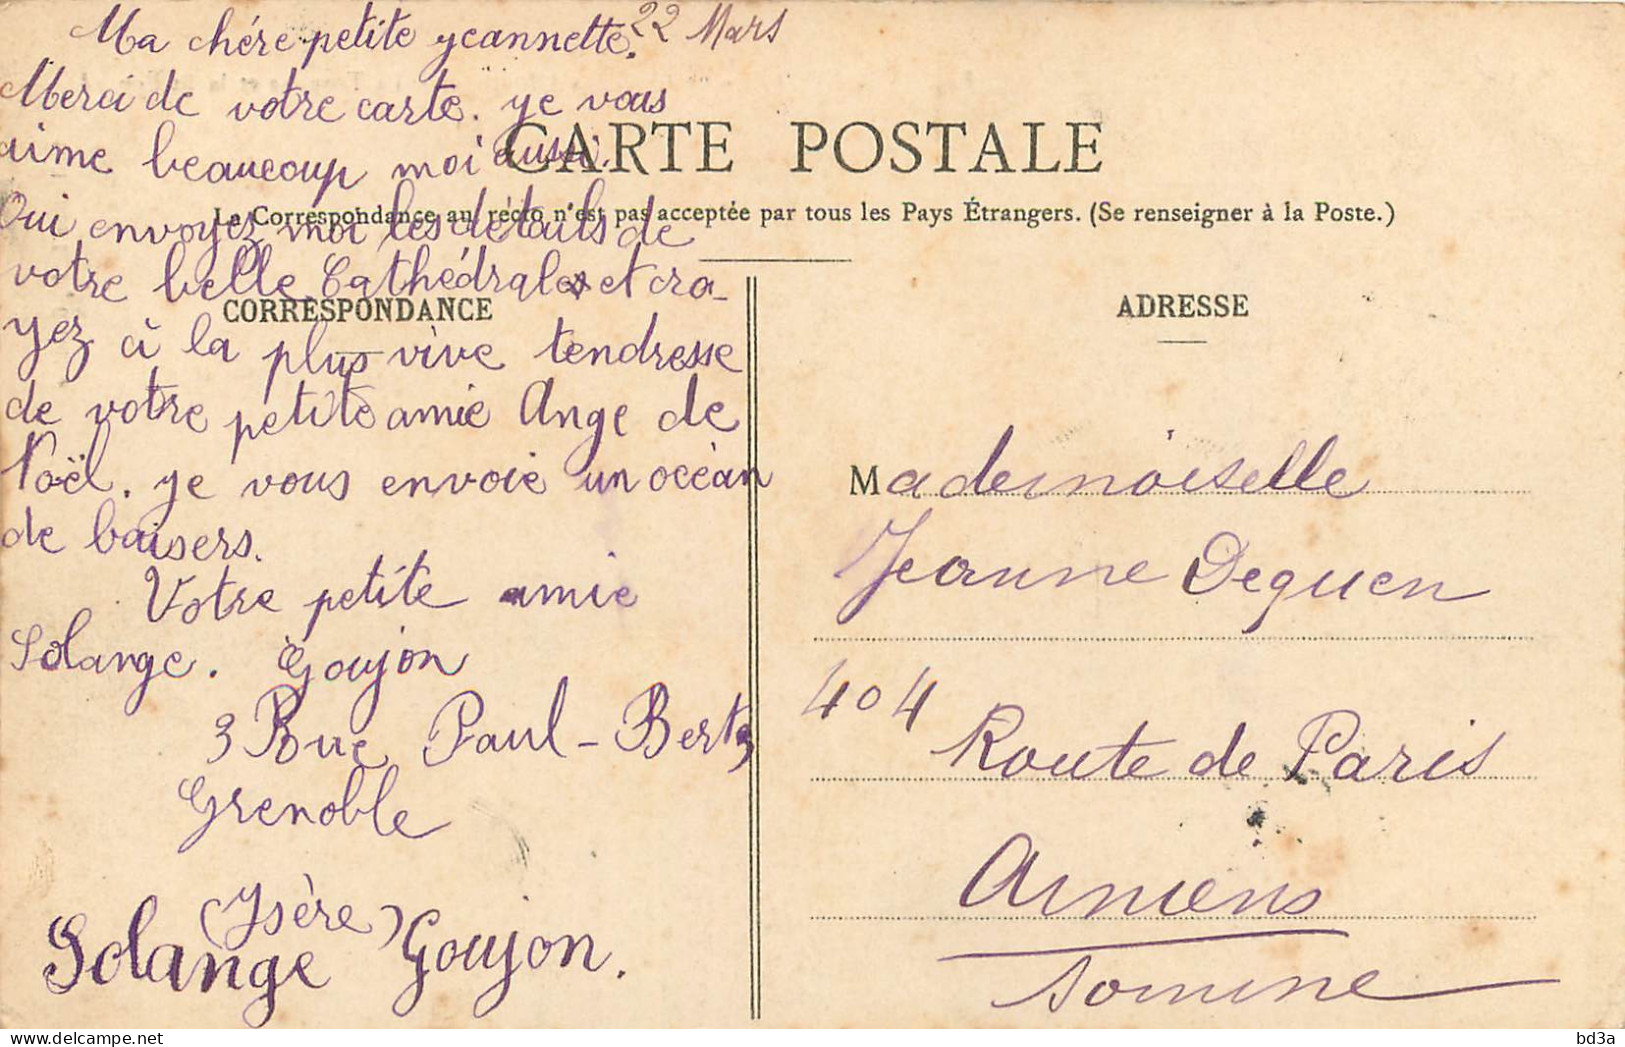 22 Mars
Ma chére petite jeannette.
Merci de votre carte. je vous
aime beaucoup moi aussi.
Oui envoyez moi les détails de
votre belle Cathédrale et cro-
yez à la plus vive tendresse
de votre petite amie Ange de
Noël. je vous envoie un océan
de baisers.
Votre petite amie
Solange. Goujon
3 Rue Paul-Bert
Grenoble
(Isère)
Solange Goujon.
CARTE POSTALE
La Correspondance au recto n'est pas acceptée par tous les Pays Étrangers. (Se renseigner à la Poste.)
CORRESPONDANCE
ADRESSE
Mademoiselle
Jeanne Deguen
404
Route de Paris
Amiens
Somme
bd3a